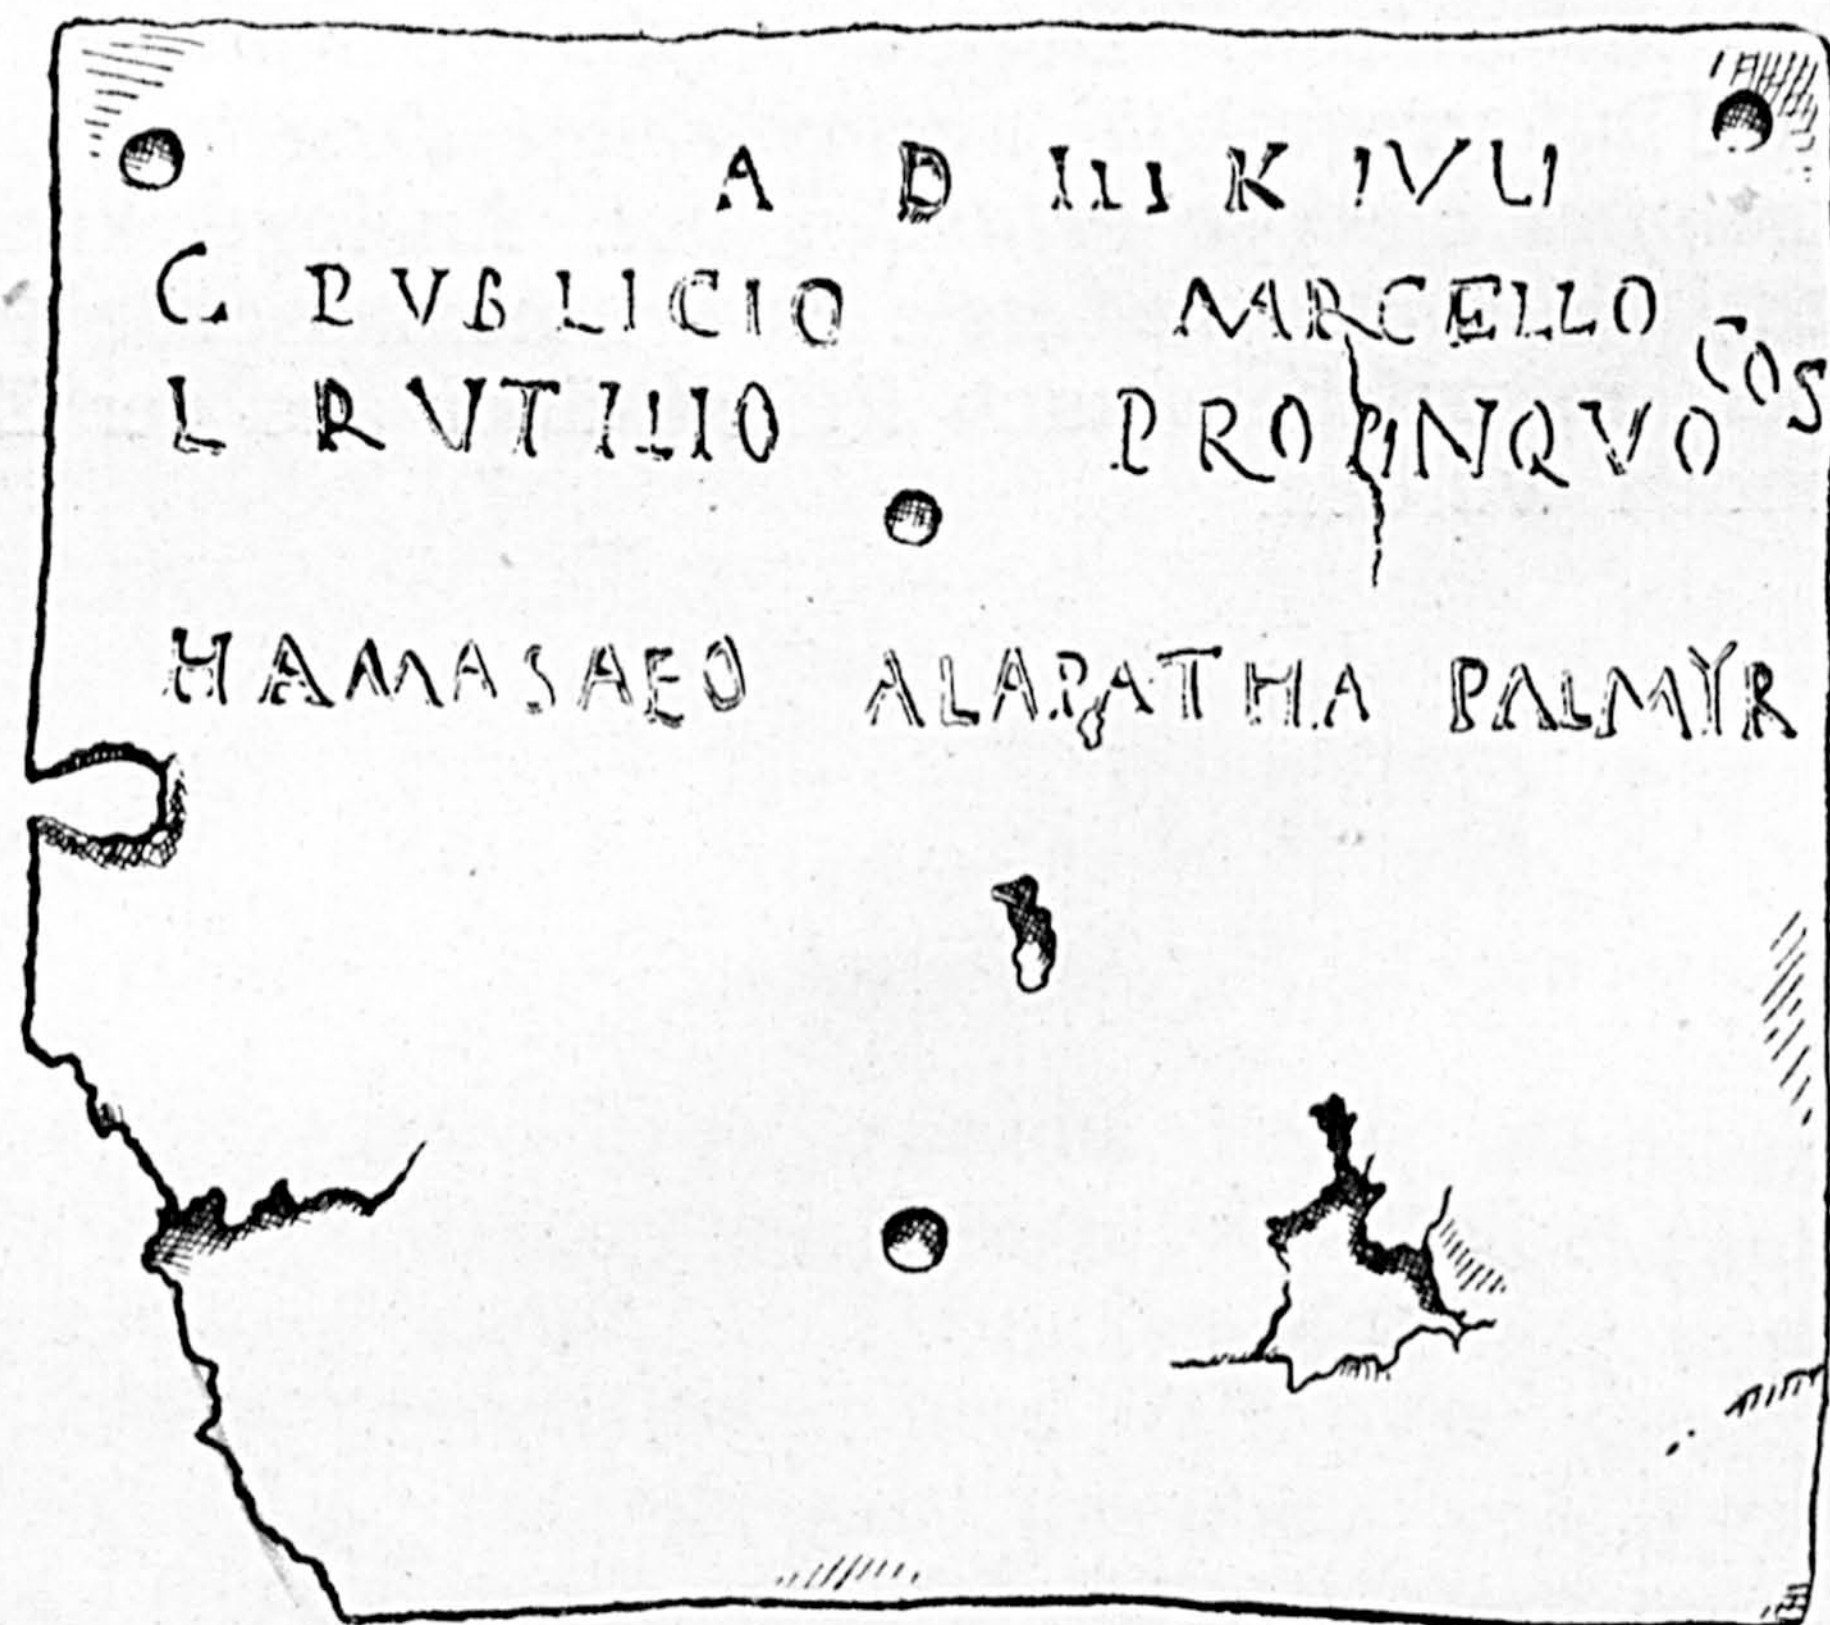 A D III K IVLI
C. PVBLICIO MARCELLO
L RVTILIO PROPINQVO COS
HAMASAEO ALAPATHA PALMYR